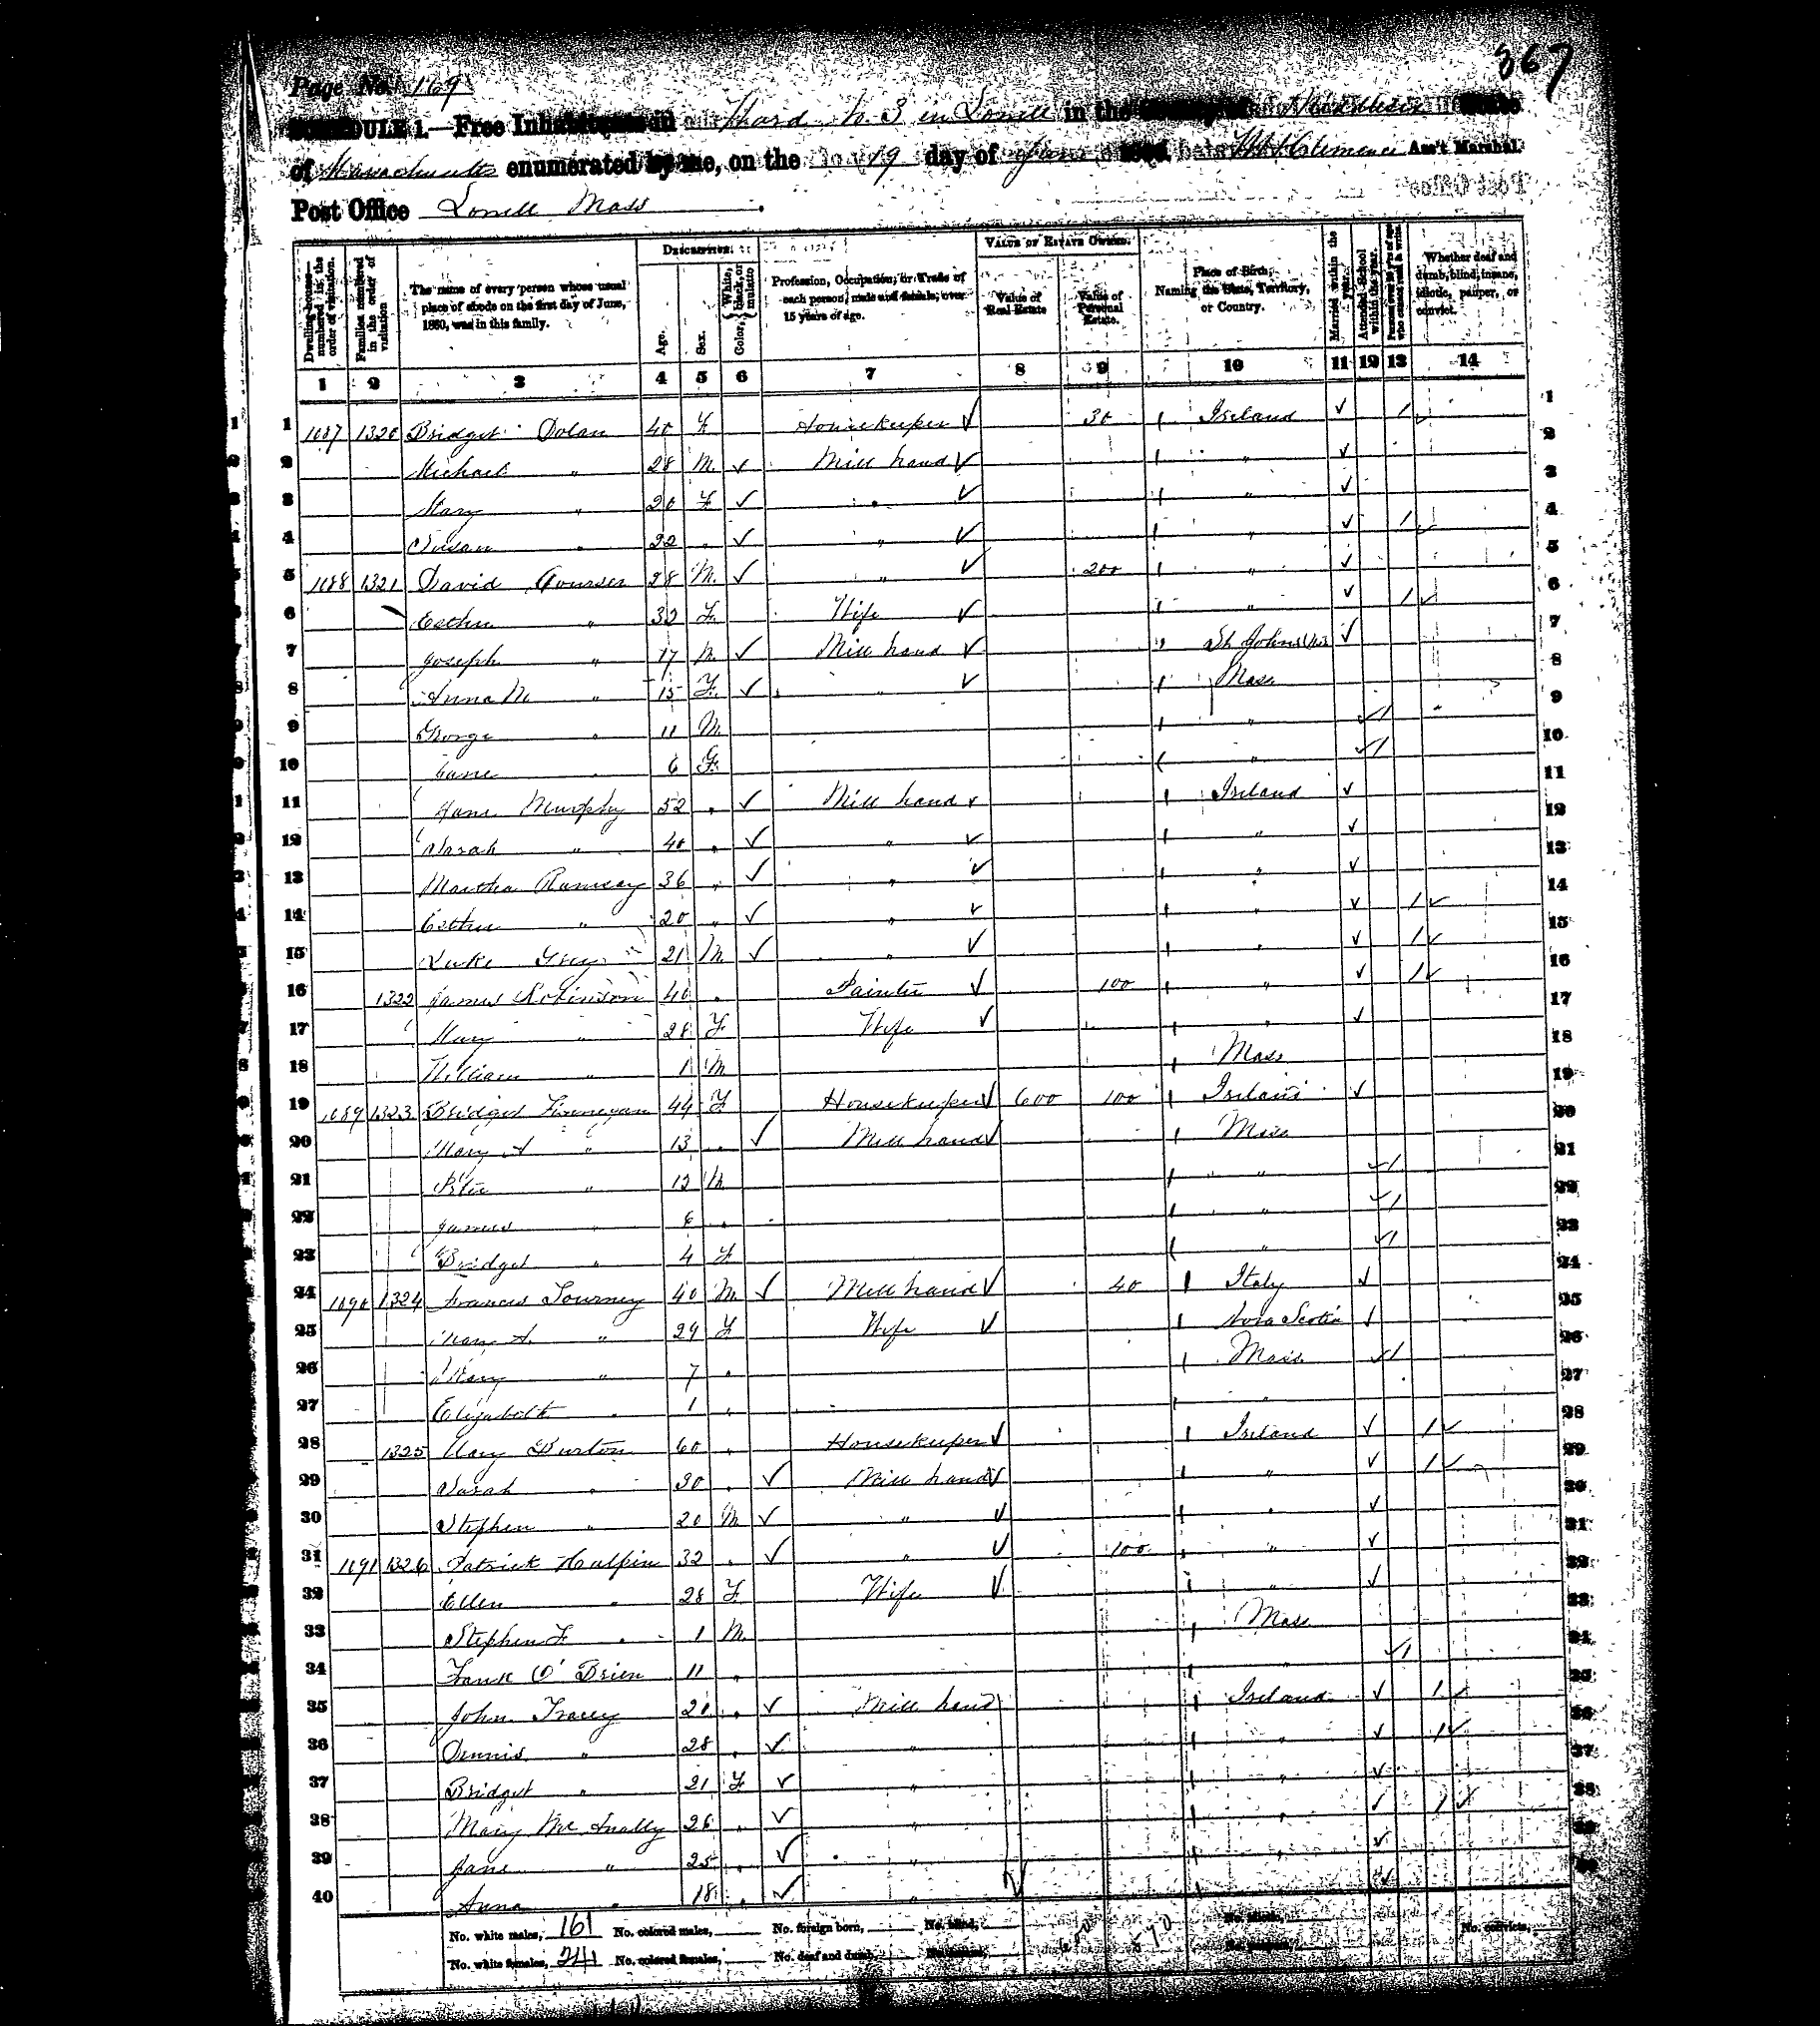 367
Page No. 169
SCHEDULE 1.—Free Inhabitants in Ward No. 3 in Lowell in the County of Middlesex State
of Massachusetts enumerated by me, on the 19 day of June 1860. Ass't Marshal.
Post Office Lowell Mass
Dwelling-houses—numbered in the order of visitation. Families numbered in the order of visitation The name of every person whose usual place of abode on the first day of June, 1860, was in this family. DESCRIPTION. Age. Sex. Color, White, black, or mulatto Profession, Occupation, or Trade of each person, male and female, over 15 years of age. VALUE OF ESTATE OWNED. Value of Real Estate Value of Personal Estate. Place of Birth, Naming the State, Territory, or Country. Married within the year. Attended School within the year. Whether deaf and dumb, blind, insane, idiotic, pauper, or convict.
1 2 3 4 5 6 7 8 9 10 11 12 13 14
1 1087 1320 Bridget Dolan 40 F Housekeeper 30 Ireland 1
2 Michael " 28 M Mill hand " 2
3 Mary " 20 F " " 3
4 Susan " 22 " " " 4
5 1088 1321 David 28 M " 200 " 5
6 Esther " 32 F Wife " 6
7 Joseph " 17 M Mill hand St Johns 7
8 Anna M " 15 F " Mass 8
9 George " 11 M " 9
10 Jane " 6 F " 10
11 Jane Murphy 52 " Mill hand Ireland 11
12 Sarah " 40 " " " 12
13 Martha Ramsay 36 " " " 13
14 Esther " 20 " " " 14
15 Luke Grey 21 M " " 15
16 1322 James Robinson 40 " Painter 100 " 16
17 Mary " 28 F Wife " 17
18 William " 1 M Mass 18
19 1089 1323 Bridget Finnegan 44 F Housekeeper 600 100 Ireland 19
20 Mary A " 13 " Mill hand Mass 20
21 Peter " 12 M " 21
22 James " 6 " " 22
23 Bridget " 4 F " 23
24 1090 1324 Francis Tourney 40 M Mill hand 40 Italy 24
25 Mary A. " 29 F Wife Nova Scotia 25
26 Mary " 7 " Mass 26
27 Elizabeth " 1 " " 27
28 1325 Mary Burton 60 " Housekeeper Ireland 28
29 Sarah " 30 " Mill hand " 29
30 Stephen " 20 M " " 30
31 1091 1326 Patrick Halpin 32 " " 100 " 31
32 Ellen " 28 F Wife " 32
33 Stephen F " 1 M Mass 33
34 Frank O'Brien 11 " " 34
35 John Tracey 20 " Mill hand Ireland 35
36 Dennis " 28 " " " 36
37 Bridget " 21 F " " 37
38 Mary Mc Anally 26 " " " 38
39 Jane " 25 " " " 39
40 Anna " 18 " " " 40
No. white males, 161 No. colored males, No. foreign born, No. blind, No. idiotic, No. convicts,
No. white females, 241 No. colored females, No. deaf and dumb,